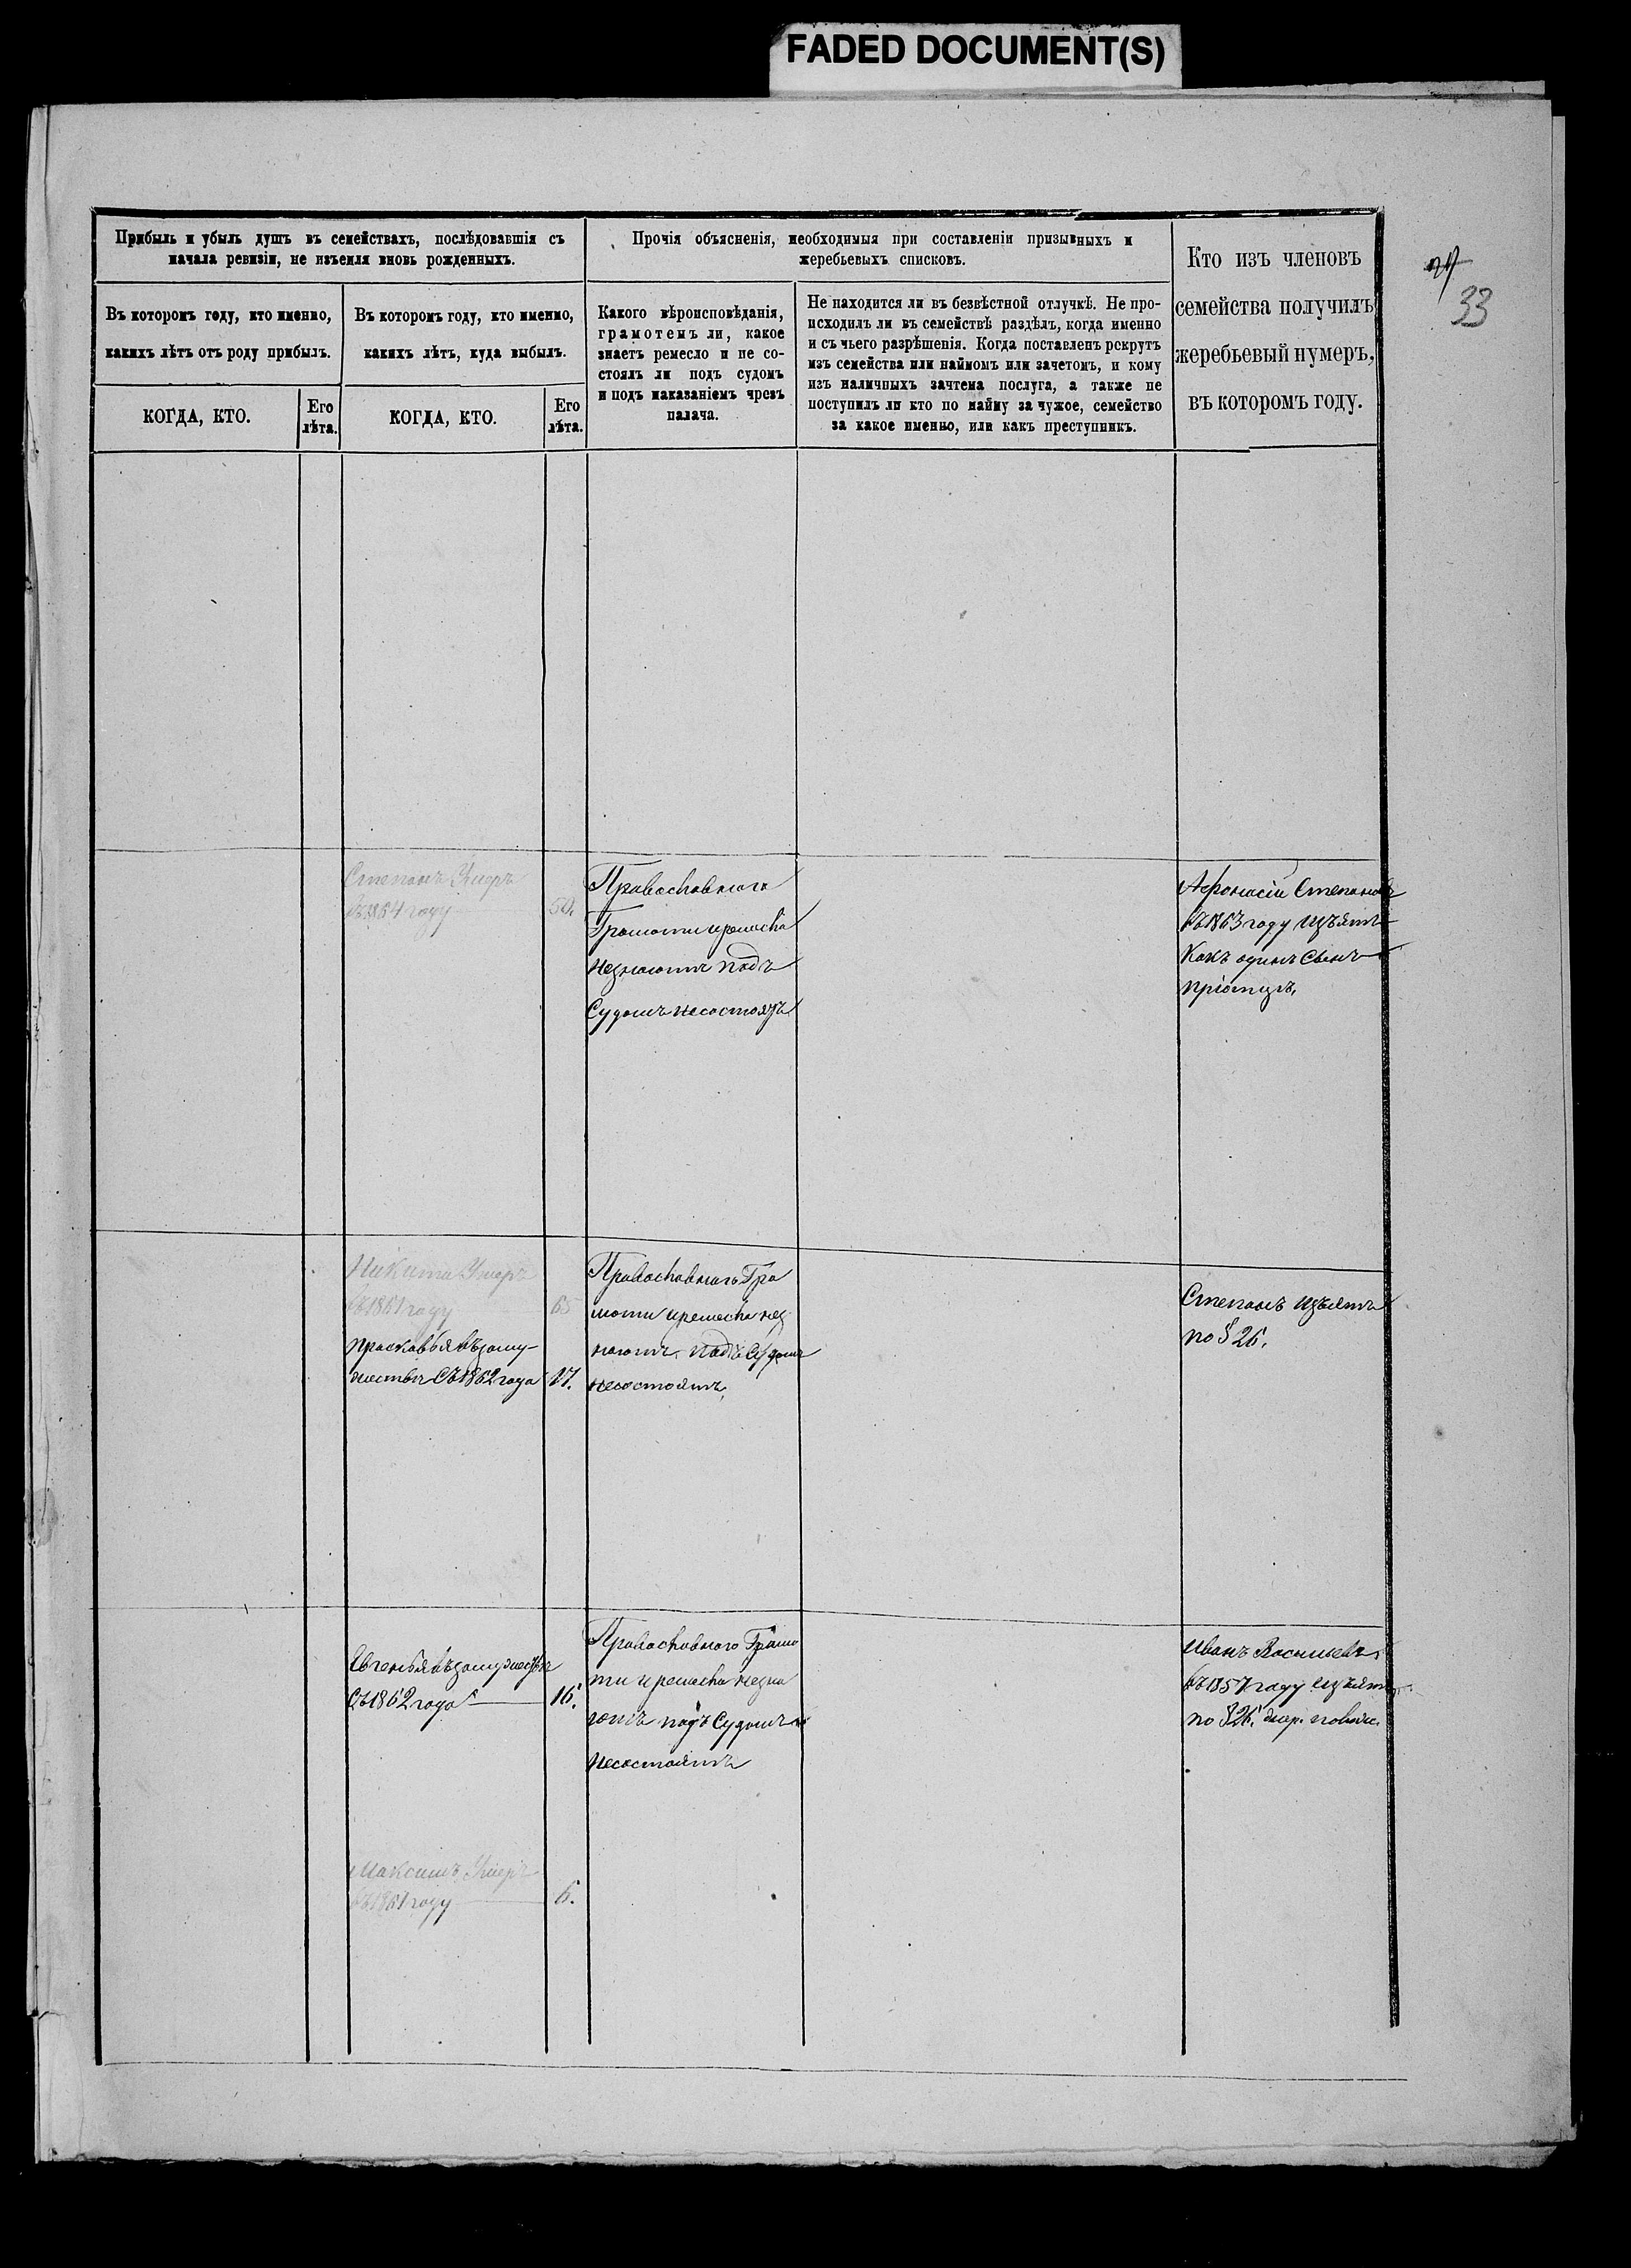 FADED DOCUMENT(S)
33
Прибыль и убыль душъ въ семействахъ, послѣдовавшія съ
начала ревизіи, не изъемля вновь рожденныхъ.
Въ которомъ году, кто именно,
какихъ лѣтъ отъ роду прибылъ.
КОГДА, КТО.
Его
лѣта.
Въ которомъ году, кто именно,
какихъ лѣтъ, куда выбылъ.
КОГДА, КТО.
Его
лѣта.
Прочія объясненія, необходимыя при составленіи призывныхъ и
жеребьевыхъ списковъ.
Какого вѣроисповѣданія,
грамотенъ ли, какое
знаетъ ремесло и не со-
стоялъ ли подъ судомъ
и подъ наказаніемъ чрезъ
палача.
Не находится ли въ безвѣстной отлучкѣ. Не про-
исходилъ ли въ семействѣ раздѣлъ, когда именно
и съ чьего разрѣшенія. Когда поставленъ рекрутъ
изъ семейства или наймомъ или зачетомъ, и кому
изъ наличныхъ зачтена послуга, а также не
поступилъ ли кто по найму за чужое, семейство
за какое именно, или какъ преступникъ.
Кто изъ членовъ
семейства получилъ
жеребьевый нумеръ,
въ которомъ году.
Степанъ Умеръ
въ 1864 году
50.
Православнаго
Грамоти иремесла
незнаютъ подъ
Судомъ несостоятъ
Афонасіи Степановъ
въ 1863 году изъятъ
Какъ одинъ Сынъ
Никита Умеръ
въ 1861 году
65
Прасковья въ заму-
жествѣ Съ 1862 года
17.
Православнаго Гра
моти иремесла нез
наютъ подъ Судомъ
несостоятъ.
Степанъ изъятъ
по § 26.
Евгенья въ замужествѣ
Съ 1862 года
16.
Православного Грамо
ти и ремесла незна
ютъ подъ Судомъ
несостоятъ
Иванъ Васильевъ
въ 1857 году изъятъ
по § 26. жер. полож.
Максимъ Умеръ
въ 1861 году
6.